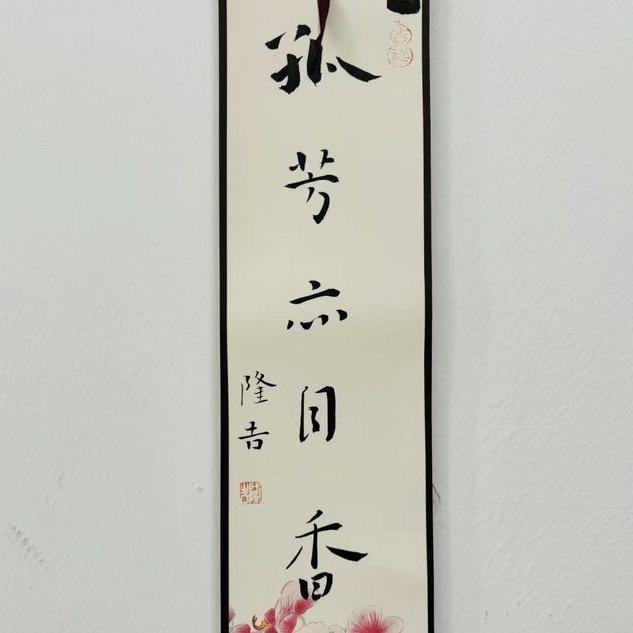 孤芳亦自香
隆吉